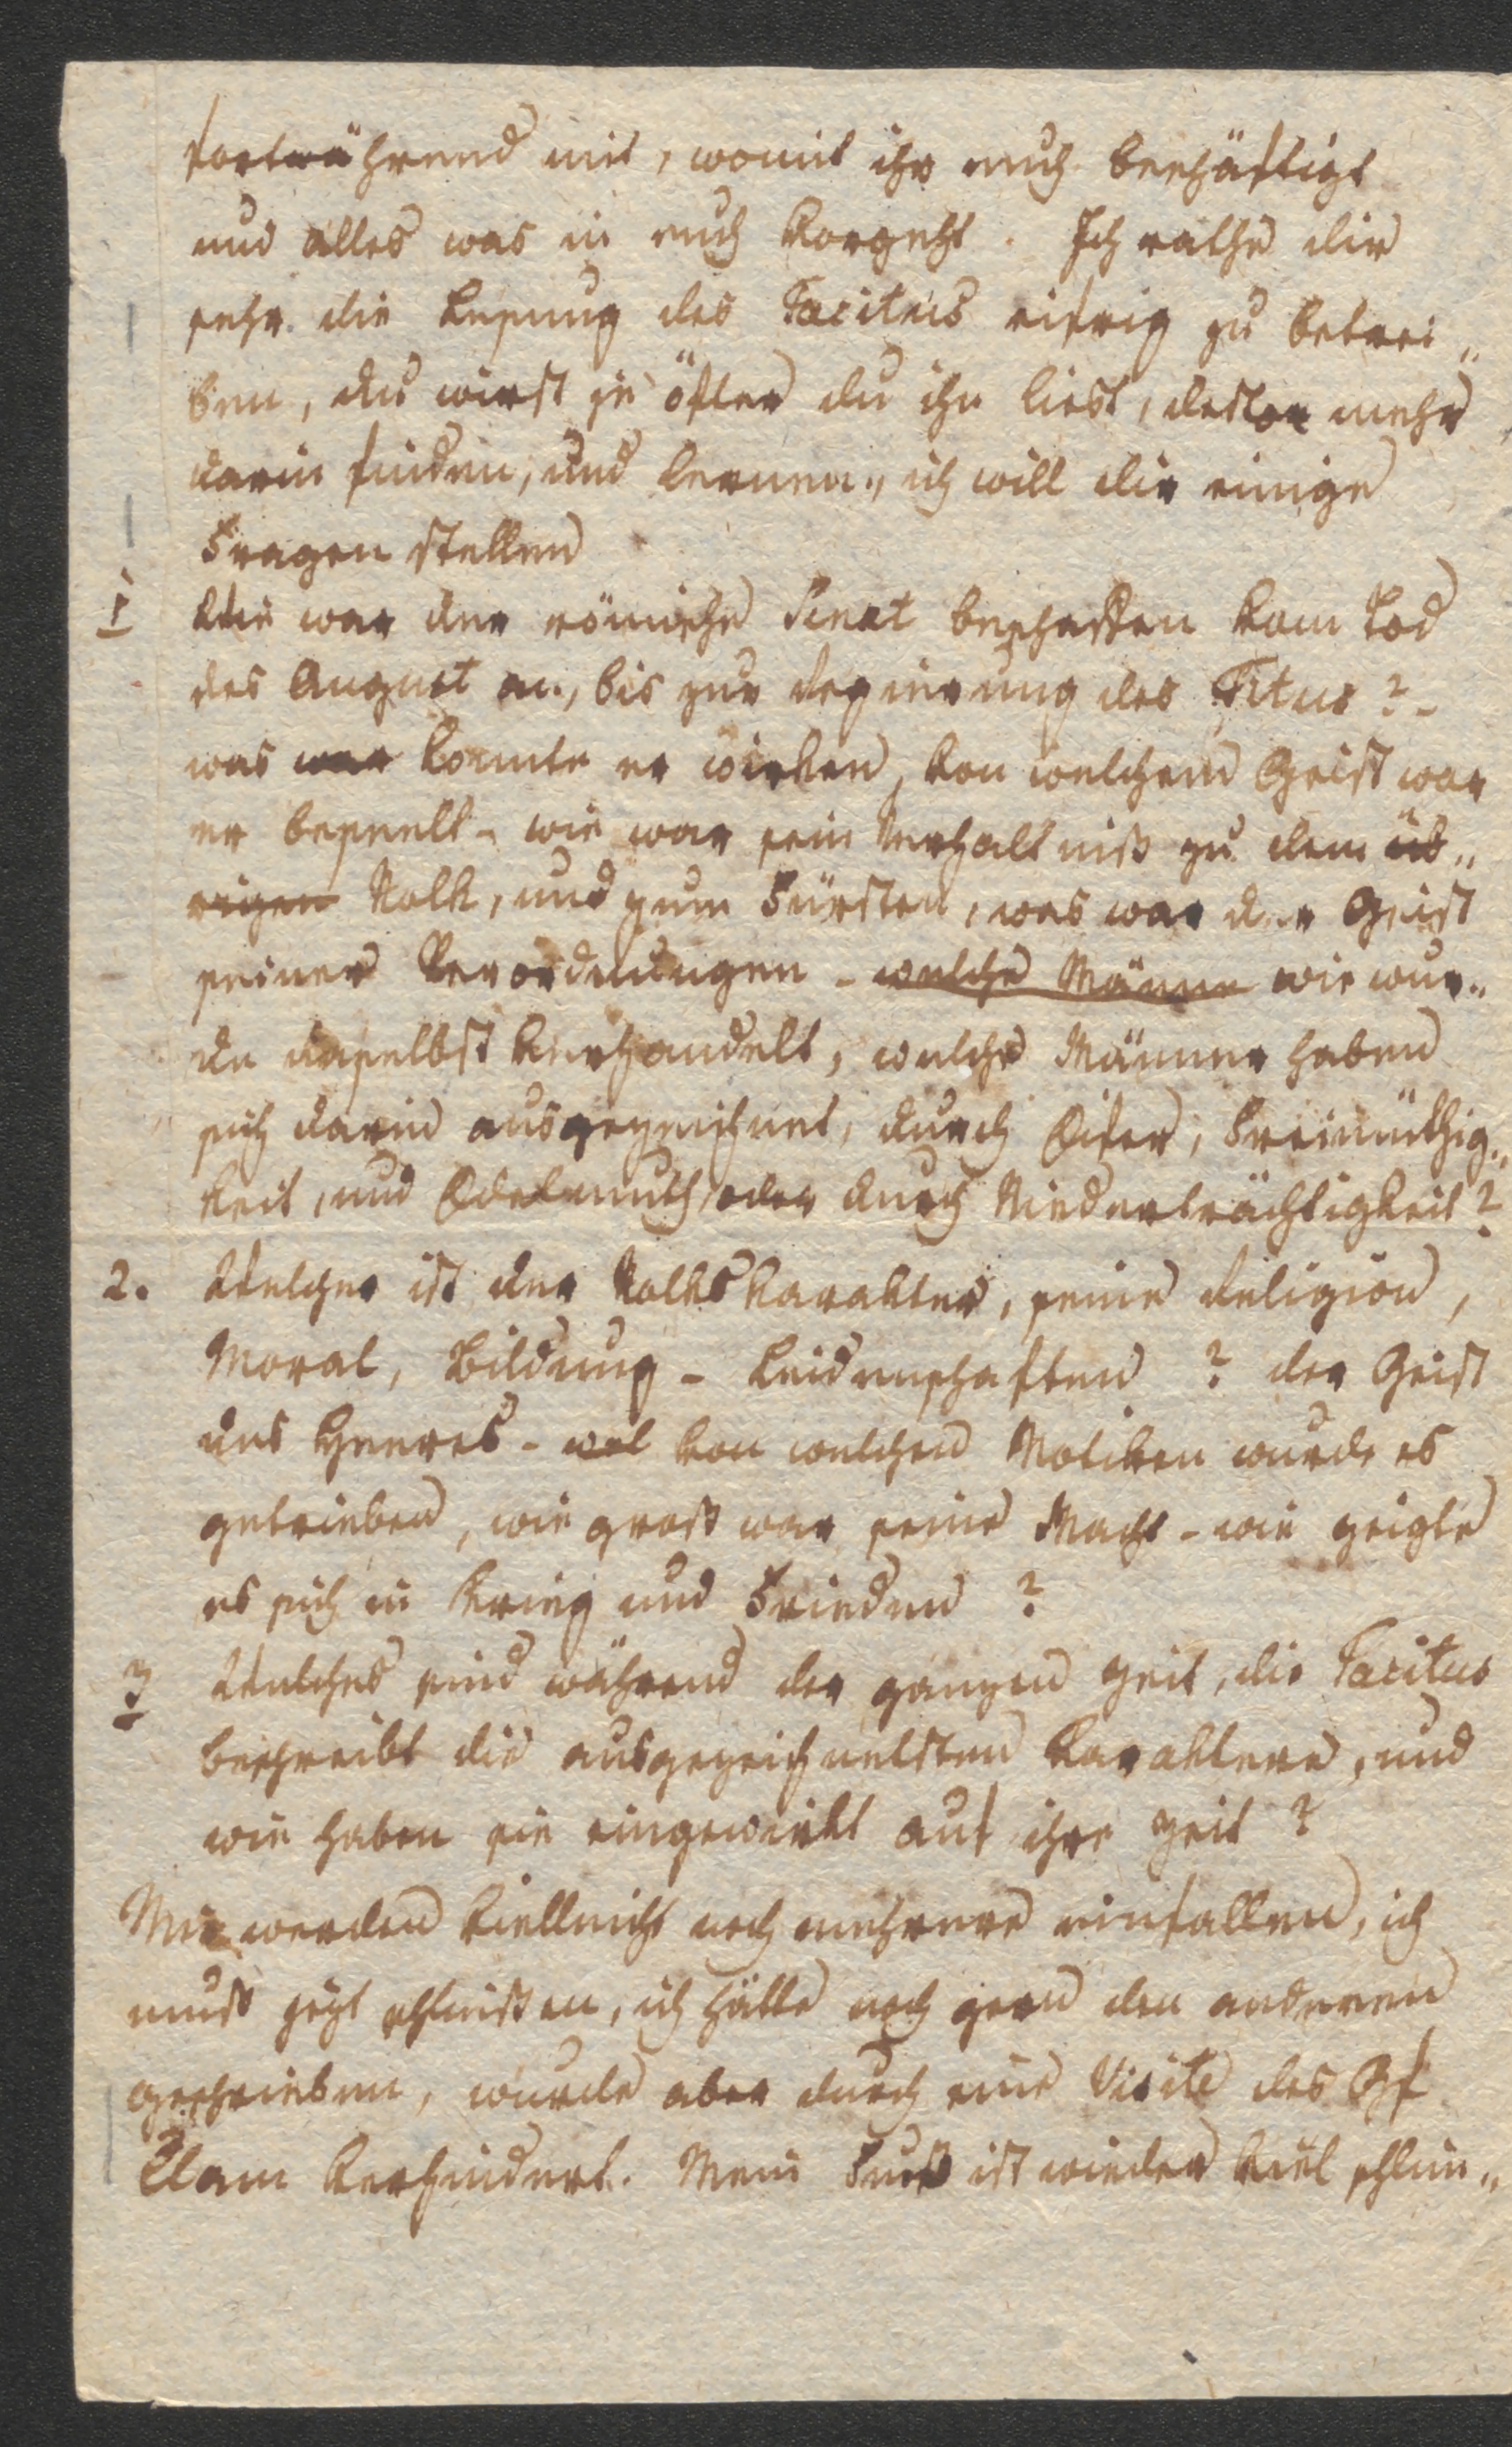 fortwährend mit, womit ihr euch beschäftigt
und alles was in euch vorgeht. Ich rathe dir
sehr die Lesung des Tacitus eifrig zu betrei„
ben, du wirst je öfter du ihn liest, destor mehr
darin finden, und lernen„ ich will dir einige
Fragen stellen
1 Wie war der römische Senat beschaffen vom Tod
des August an, bis zur Regierung des Titus? -
was war konnte er wirken, von welchem Geist war
er beseelt - wie war sein Verhaltniß zu dem üb„
rigen Volk, und zum Fürsten, was war der Geist
seiner Verordnungen - welche Männer wie wur„
de daselbst verhandelt, welche Männer haben
sich darin ausgezeichnet, durch Eifer, Freimüthig„
keit, und Edelmuth oder durch Niederträchtigkeit?
2. Welcher ist der Volkskarakter, seine Religion,
Moral, Bildung - Leidenschaften ? der Geist
des Heeres - wel von welchen Motiven wurde es
getrieben, wie groß war seine Macht - wie zeigte
es sich in Krieg und Frieden ?
3 Welches sind während der ganzen Zeit, die Tacitus
beschreibt die ausgezeichnetsten Karaktere, und
wie haben sie eingewirkt auf ihre Zeit ?
Mir werden vielleicht noch mehrere einfallen, ich
muß jezt schließen, ich hätte noch gern den anderen
geschrieben, wurde aber durch eine Visite des Gf
Clam verhindert. Mein Fuß ist wieder viel schlim„